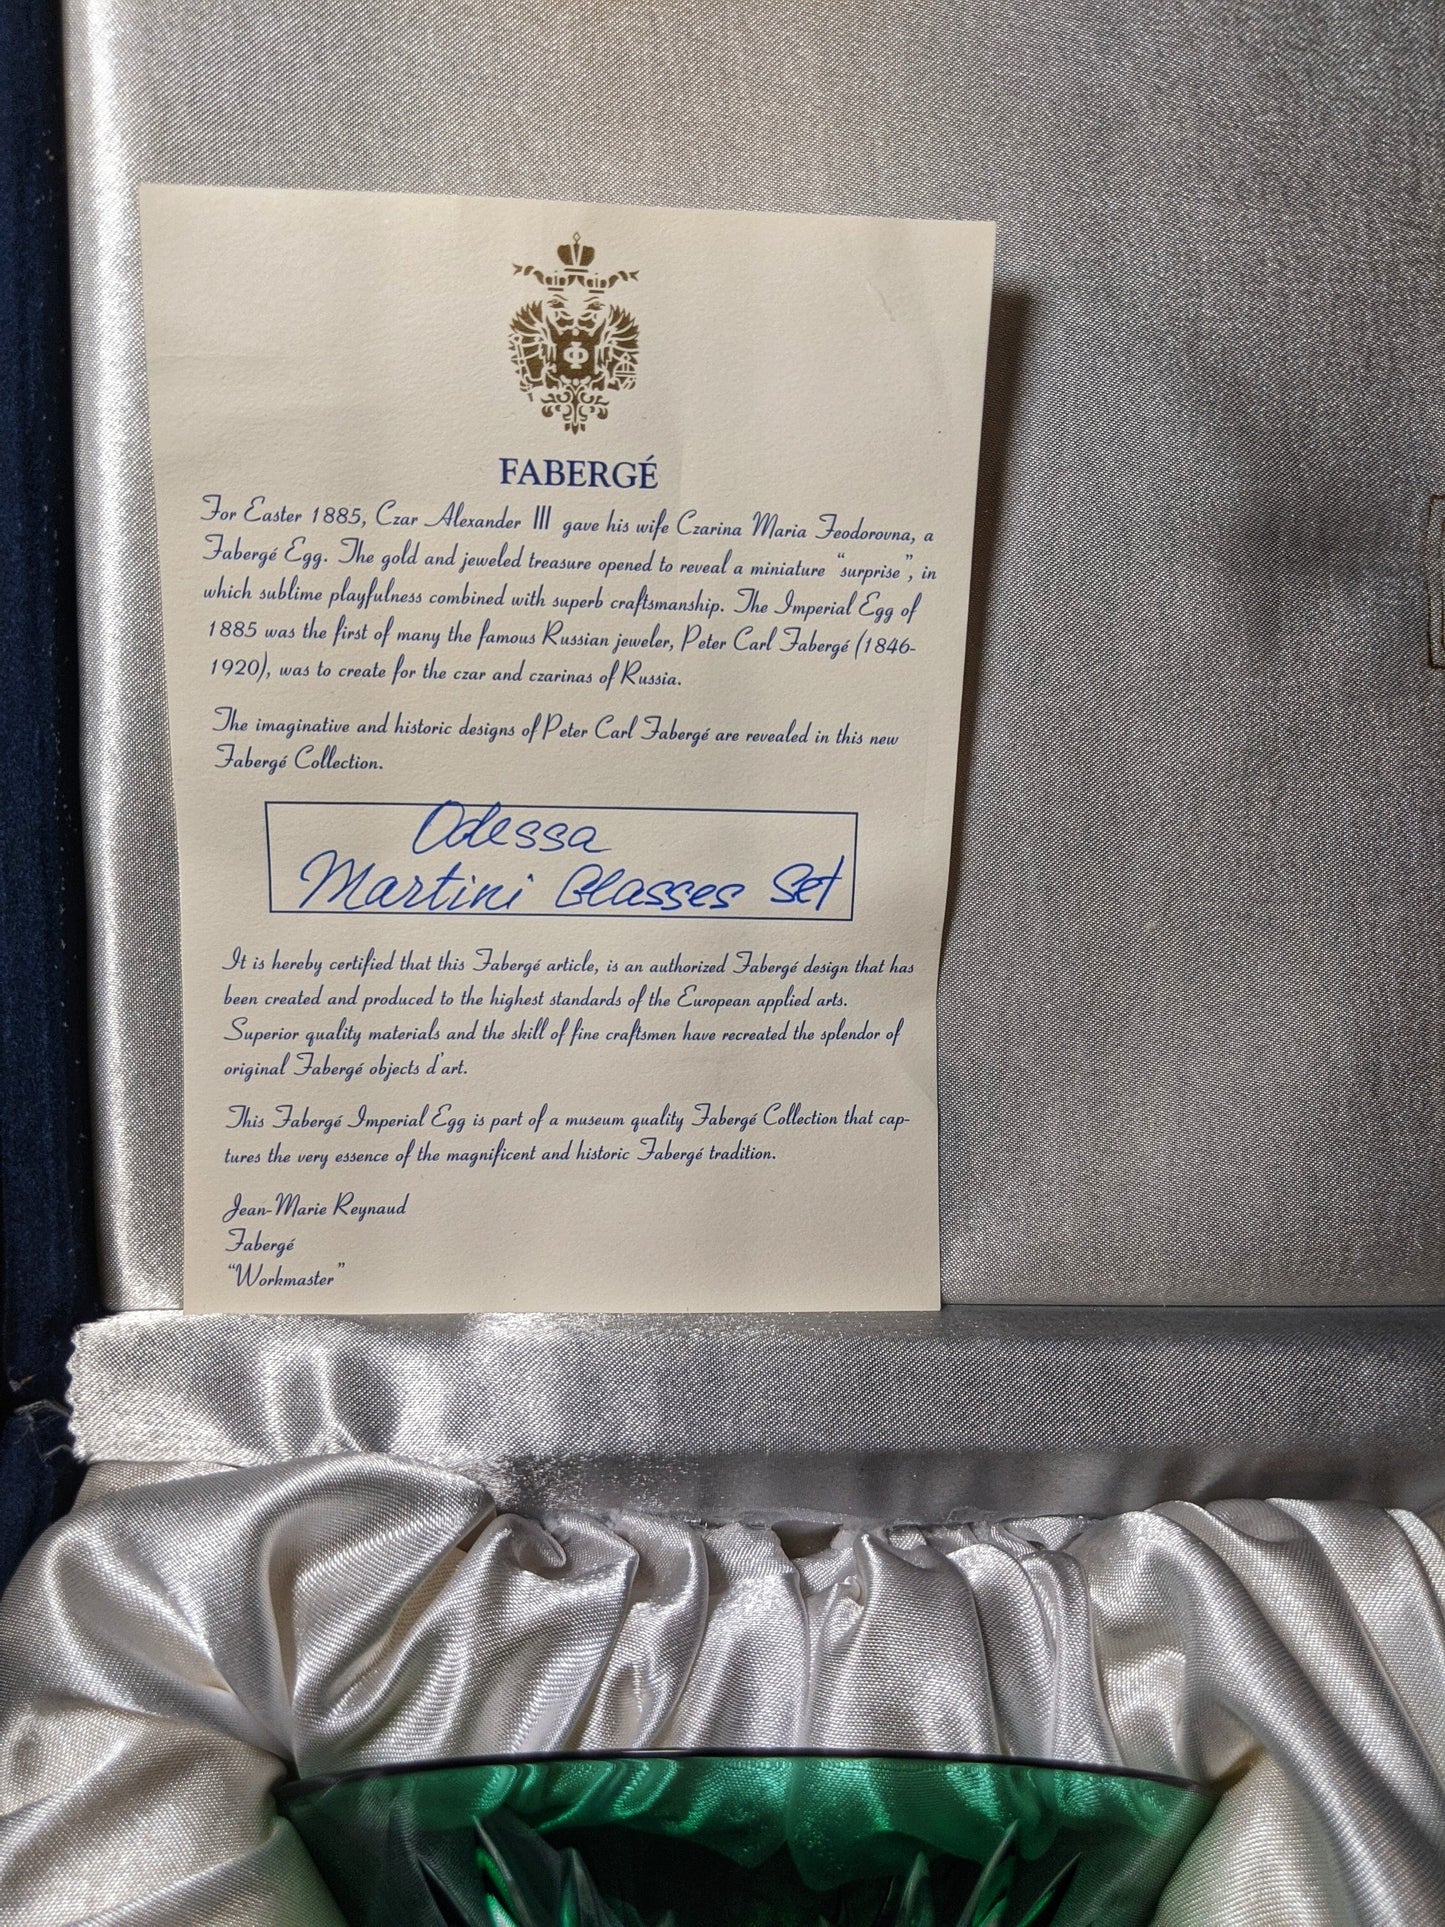 Ф
FABERGÉ
For Easter 1885, Czar Alexander III gave his wife Czarina Maria Feodorovna, a
Fabergé Egg. The gold and jeweled treasure opened to reveal a miniature “surprise”, in
which sublime playfulness combined with superb craftsmanship. The Imperial Egg of
1885 was the first of many the famous Russian jeweler, Peter Carl Fabergé (1846-
1920), was to create for the czar and czarinas of Russia.
The imaginative and historic designs of Peter Carl Fabergé are revealed in this new
Fabergé Collection.
Odessa
Martini Glasses Set
It is hereby certified that this Fabergé article, is an authorized Fabergé design that has
been created and produced to the highest standards of the European applied arts.
Superior quality materials and the skill of fine craftsmen have recreated the splendor of
original Fabergé objects d'art.
This Fabergé Imperial Egg is part of a museum quality Fabergé Collection that cap-
tures the very essence of the magnificent and historic Fabergé tradition.
Jean-Marie Reynaud
Fabergé
“Workmaster”